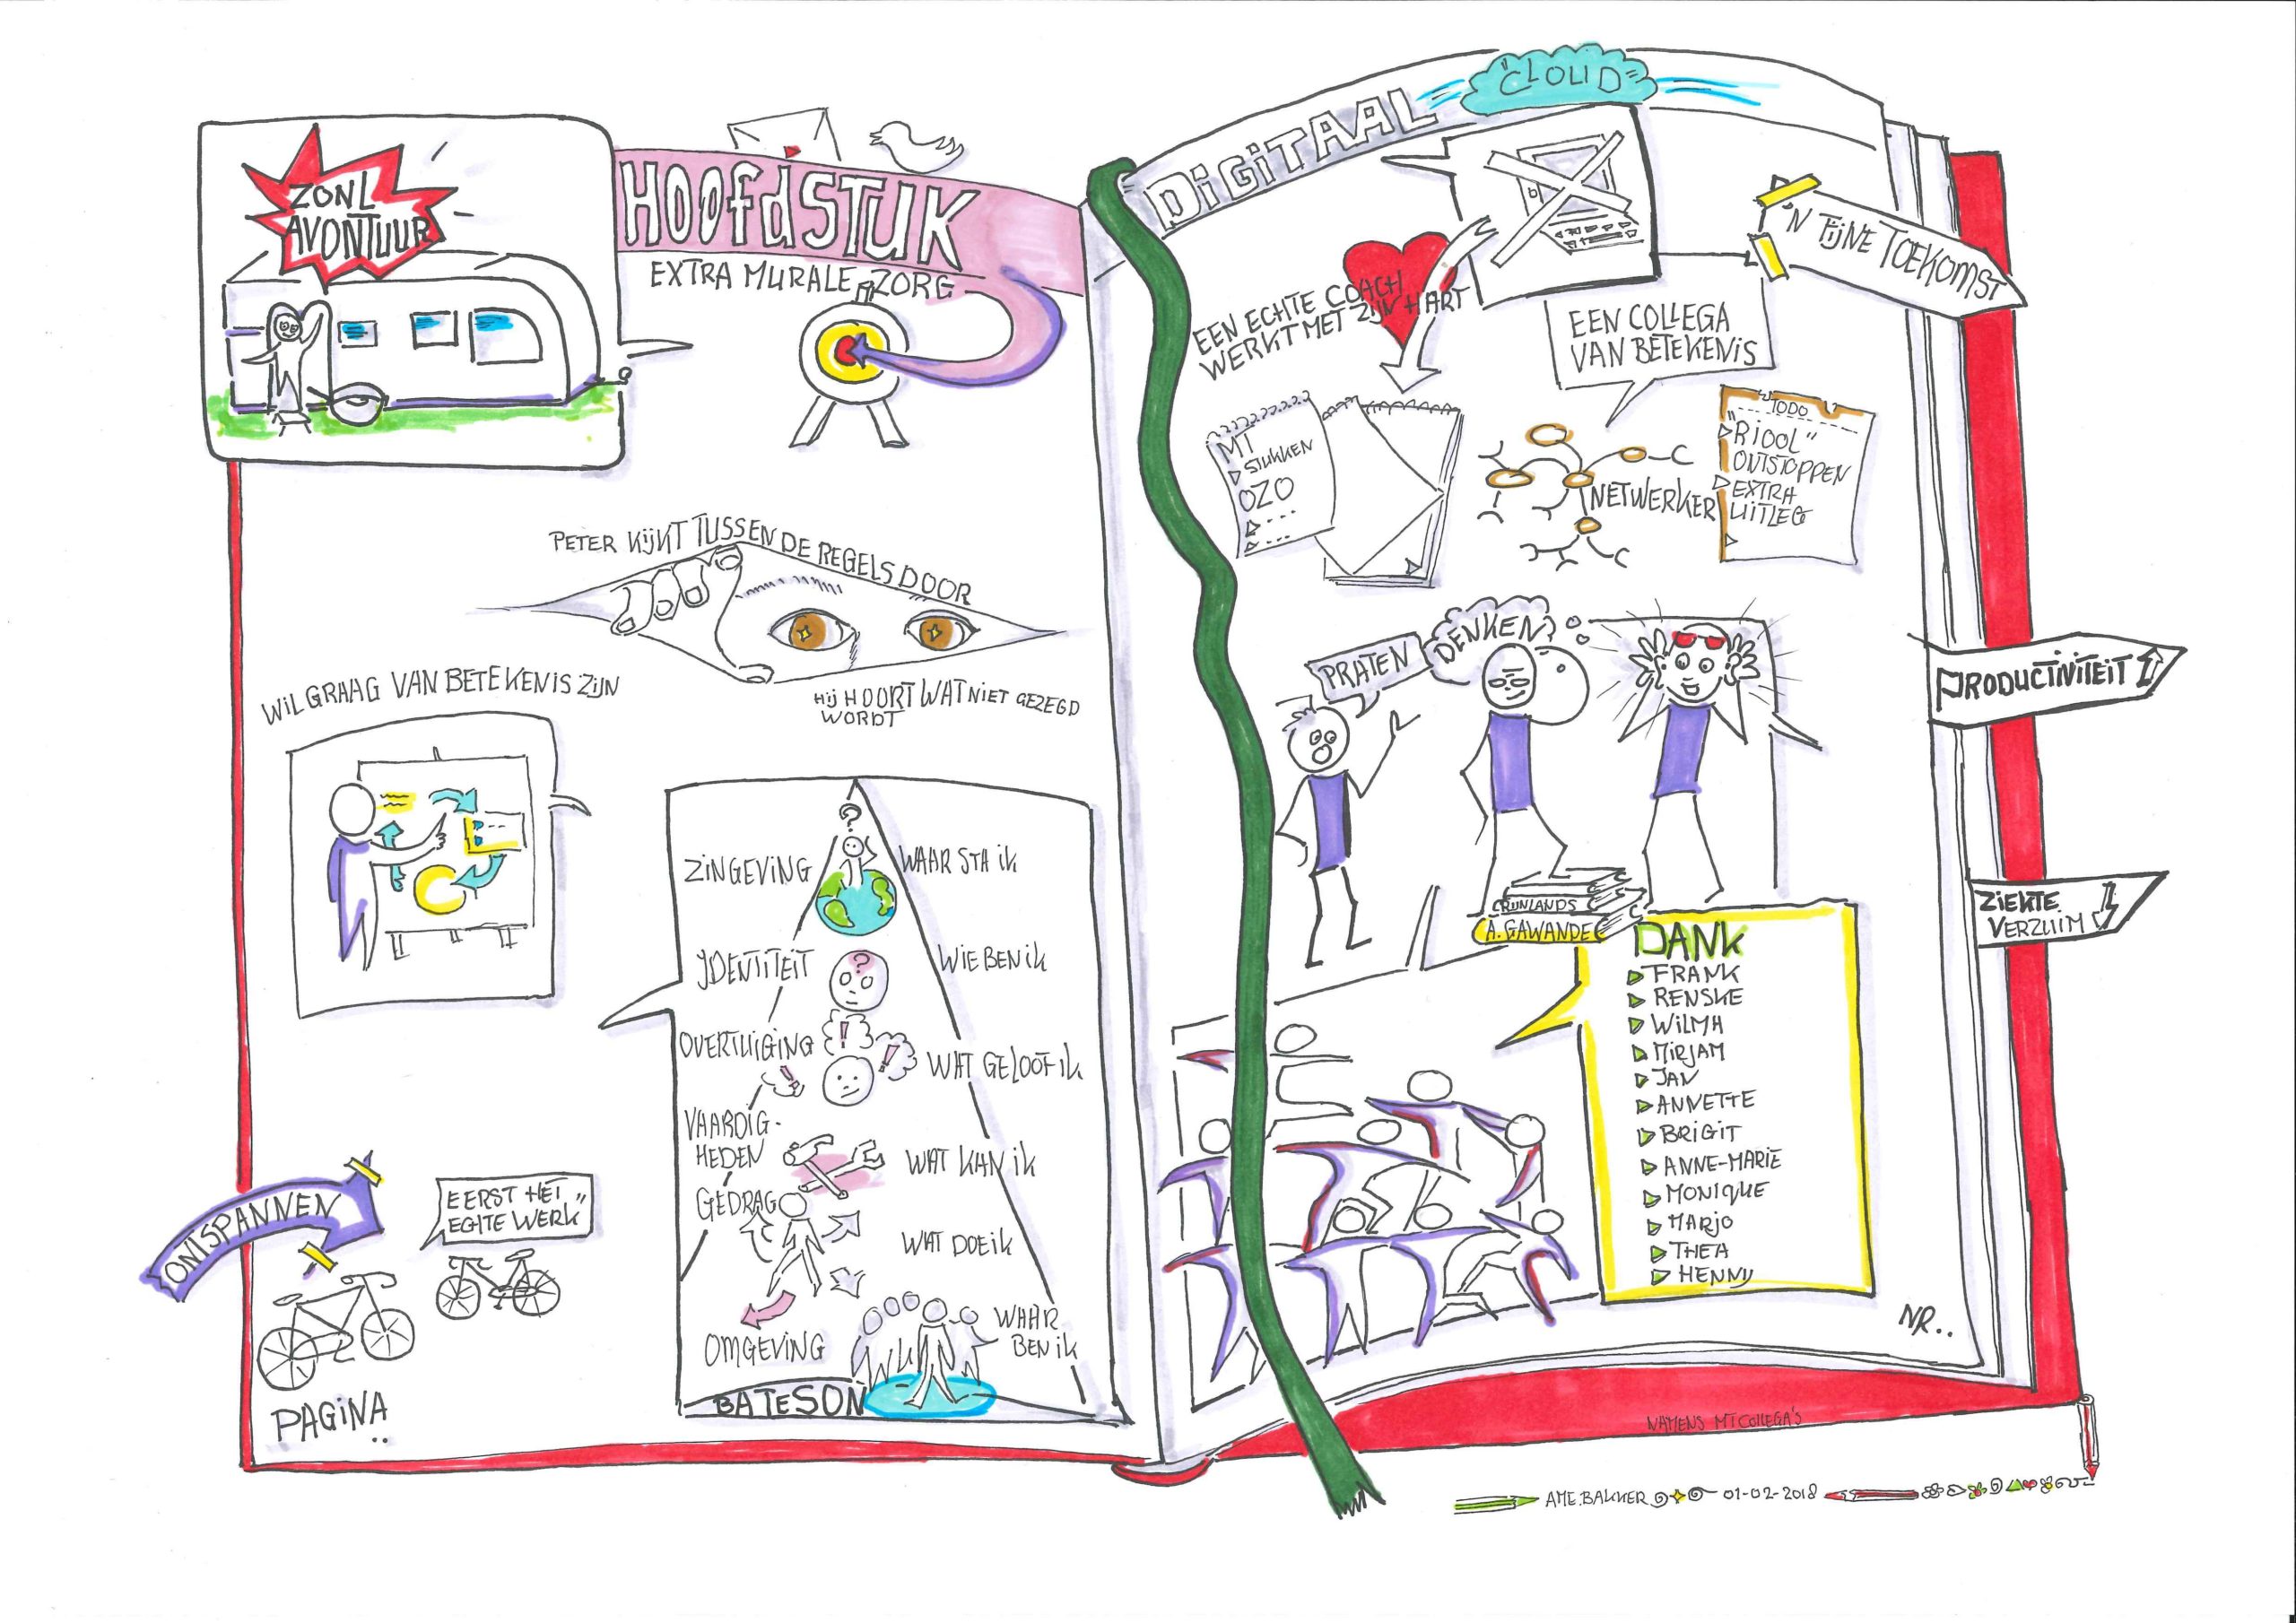 ZONL
AVONTUUR
HOOFDSTUK
EXTRA MURALE ZORG
PETER KIJKT TUSSEN DE REGELS DOOR
HIJ HOORT WAT NIET GEZEGD
WORDT
WIL GRAAG VAN BETEKENIS ZIJN
ZINGEVING
WAAR STA ik
IDENTITEIT
WIE BEN ik
OVERTUIGING
WAT GELOOF ik
VAARDIG-
HEDEN
WAT KAN ik
GEDRAG
WAT DOE ik
OMGEVING
WAAR
BEN ik
BATESON
ONTSPANNEN
EERST HET
ECHTE WERK"
PAGINA..
DIGITAAL
"CLOUD"
'N FIJNE TOEKOMST
EEN ECHTE COACH
WERKT MET ZIJN HART
EEN COLLEGA
VAN BETEKENIS
MT
STUKKEN
OZO
NETWERKER
TODO
"RIOOL"
ONTSTOPPEN
EXTRA
UITLEG
PRATEN
DENKEN
PRODUCTIVITEIT
ZIEKTE
VERZUIM
A. GAWANDE
DANK
FRANK
RENSKE
WILMA
MIRJAM
JAN
ANNETTE
BRIGIT
ANNE-MARIE
MONIQUE
MARJO
THEA
HENNY
NR..
NAMENS MT COLLEGA'S
AME.BAKKER 01-02-2018